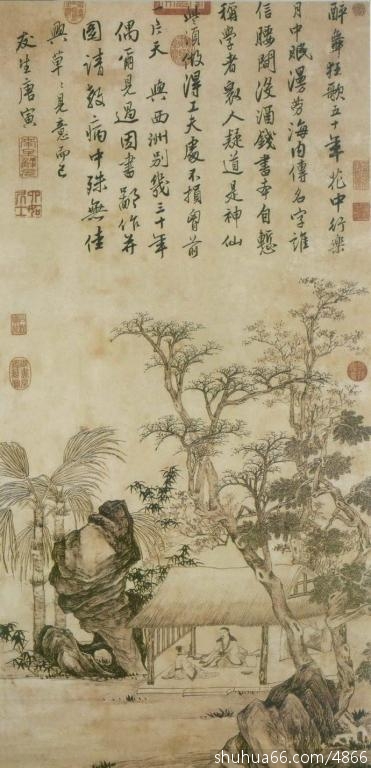 醉舞狂歌五十年花中行樂
月中眠漫勞海內傳名字誰
信腰間沒酒錢書本自慙
稱學者衆人疑道是神仙
些須做得工夫處不損胷前
一片天 與西洲別幾三十年
偶爾見過因書鄙作并
圖請教病中殊無佳
興草々見意而已
友生唐寅
六如居士
shuhua66.com/4866